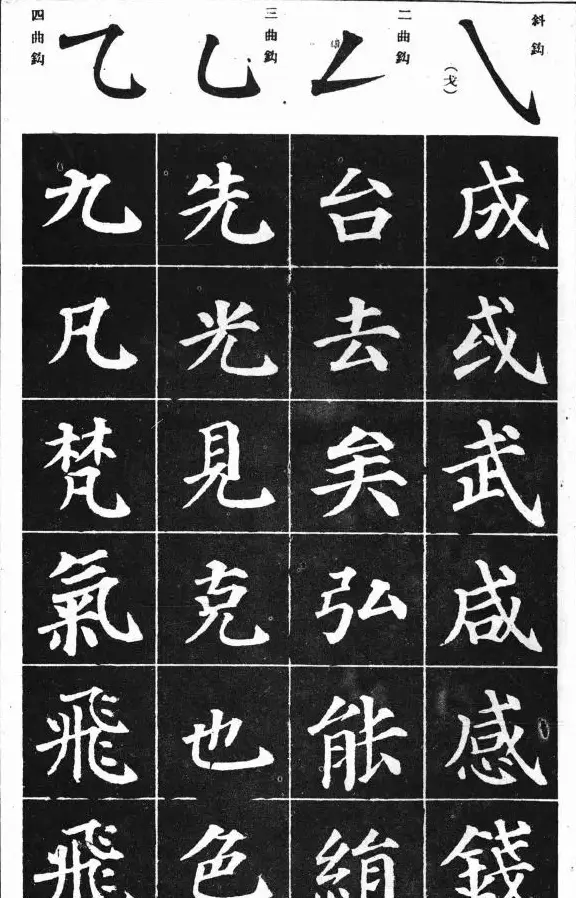 斜鈎
(戈)
成或武咸感錢
二曲鈎
台去矣弘能
三曲鈎
先光見克也色
四曲鈎
九凡梵氣飛飛